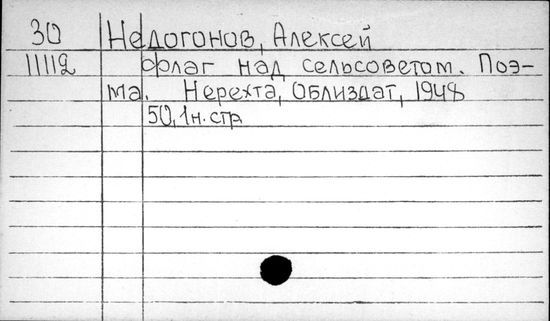 30 Недогонов, Алексей
11112 Флаг над сельсоветом. Поэ-
ма. Нерехта, Облиздат, 1948
50,1н.стр